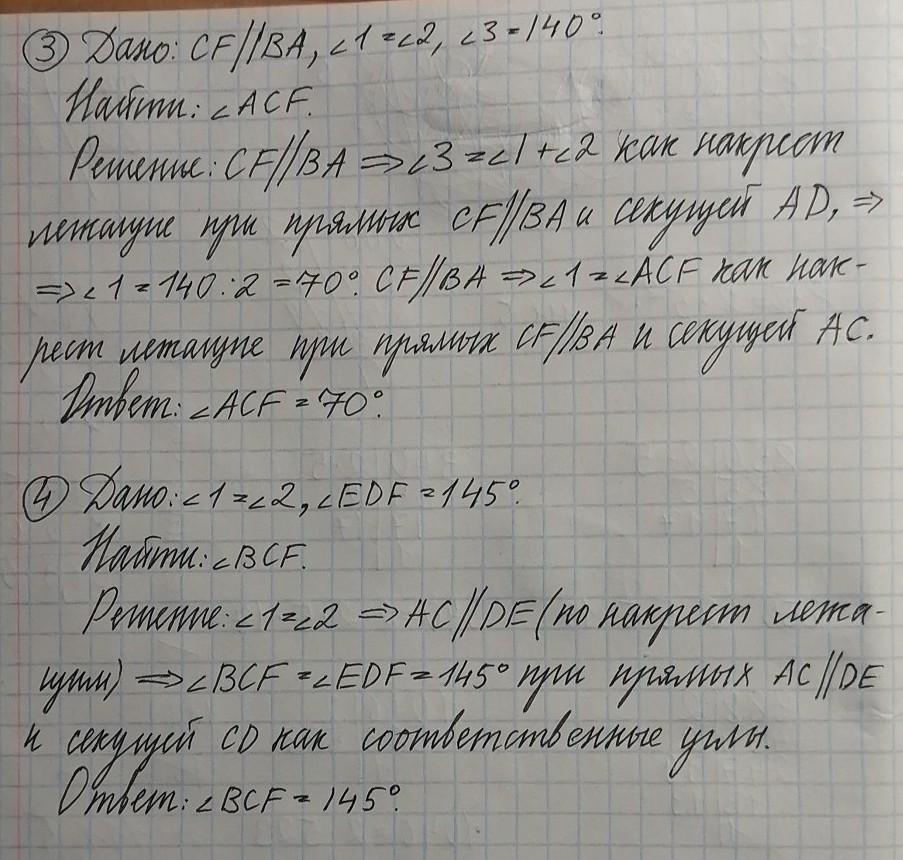 ③ Дано: CF//BA, ∠1=∠2, ∠3=140°.
Найти: ∠ACF.
Решение: CF//BA ⇒ ∠3=∠1+∠2 как накрест
лежащие при прямых CF//BA и секущей AD, ⇒
⇒ ∠1=140:2=70°. CF//BA ⇒ ∠1=∠ACF как нак-
рест лежащие при прямых CF//BA и секущей AC.
Ответ: ∠ACF=70°.
④ Дано: ∠1=∠2, ∠EDF=145°.
Найти: ∠BCF.
Решение: ∠1=∠2 ⇒ AC//DE (по накрест лежа-
щим) ⇒ ∠BCF=∠EDF=145° при прямых AC//DE
и секущей CD как соответственные углы.
Ответ: ∠BCF=145°.